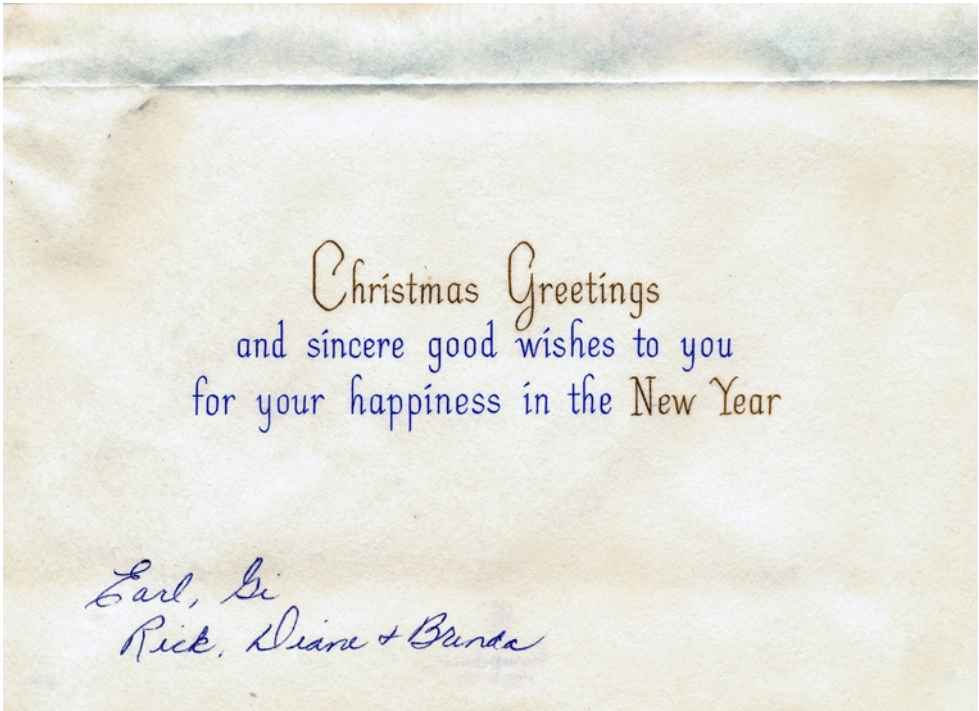 Christmas Greetings
and sincere good wishes to you
for your happiness in the New Year
Earl, Gi
Rick, Diane + Brenda